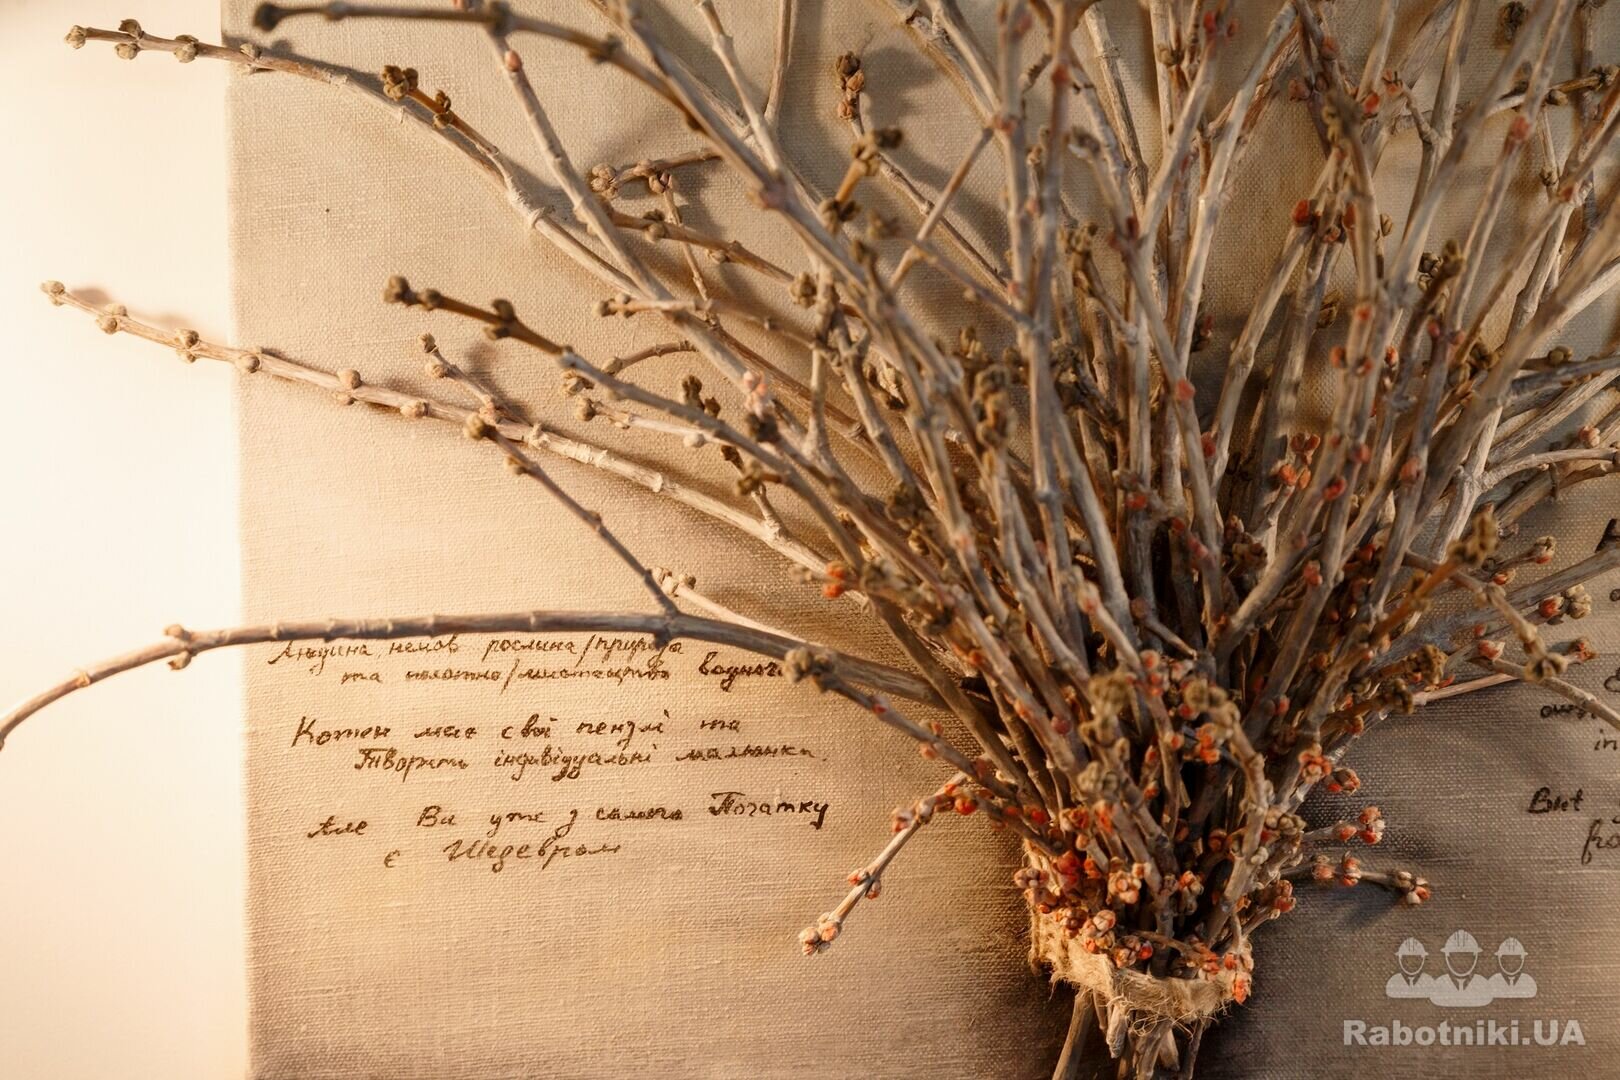 Людина, немов рослина/природа
та полотно/мистецтво водноч
Кожен має свої пензлі та
Творить індивідуальні малюнки.
Але Ви уже з самого Початку
є Шедевром
in
But
fro
Rabotniki.UA